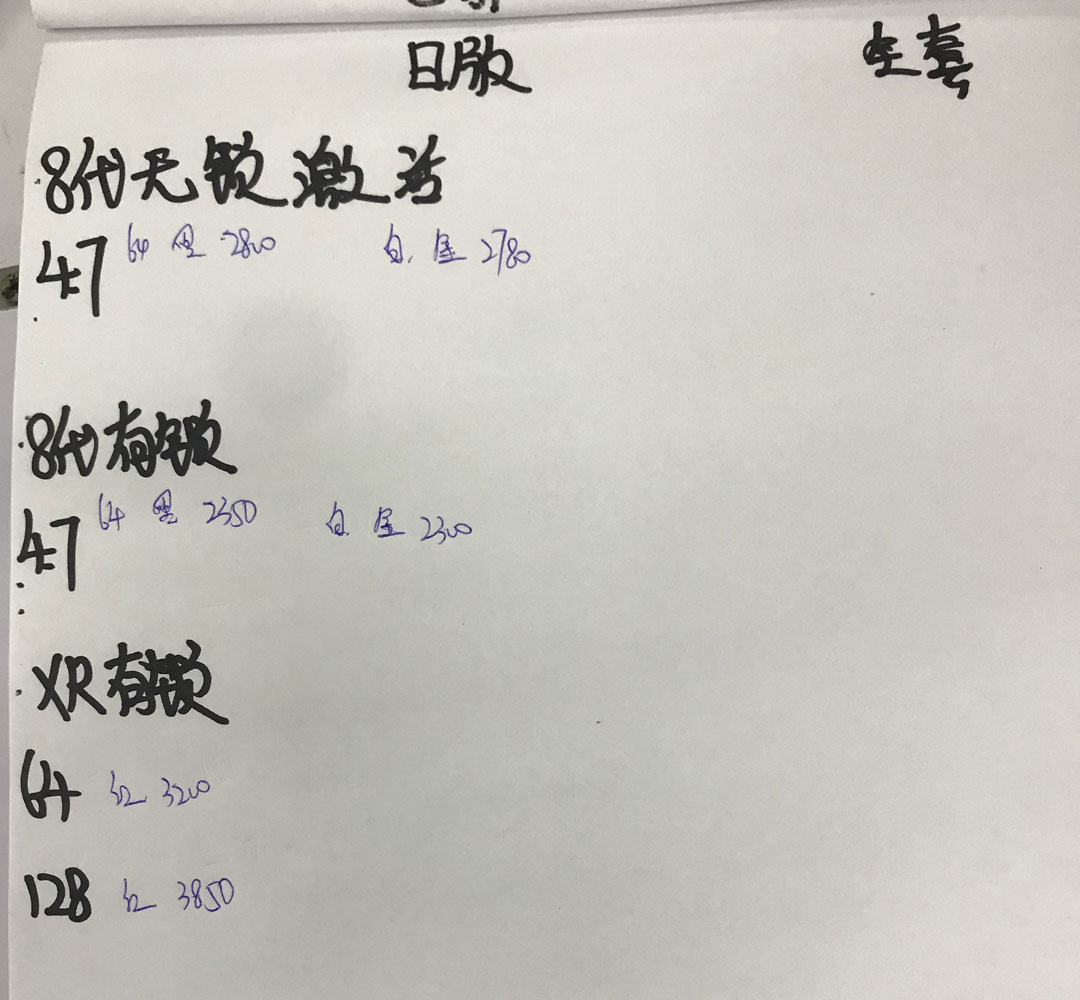 日版 全套
8代无锁激活
4.7 64 黑 2800 白.金 2780
8代有锁
4.7 64 黑 2350 白.金 2300
XR有锁
64 红 3200
128 红 3850